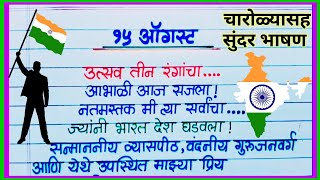 १५ ऑगस्ट
चारोळ्यासह
सुंदर भाषण
उत्सव तीन रंगांचा....
आभाळी आज सजला!
नतमस्तक मी त्या सर्वांचा....
ज्यांनी भारत देश घडवला!
सन्माननीय व्यासपीठ, वंदनीय गुरुजनवर्ग
आणि येथे उपस्थित माझ्या प्रिय